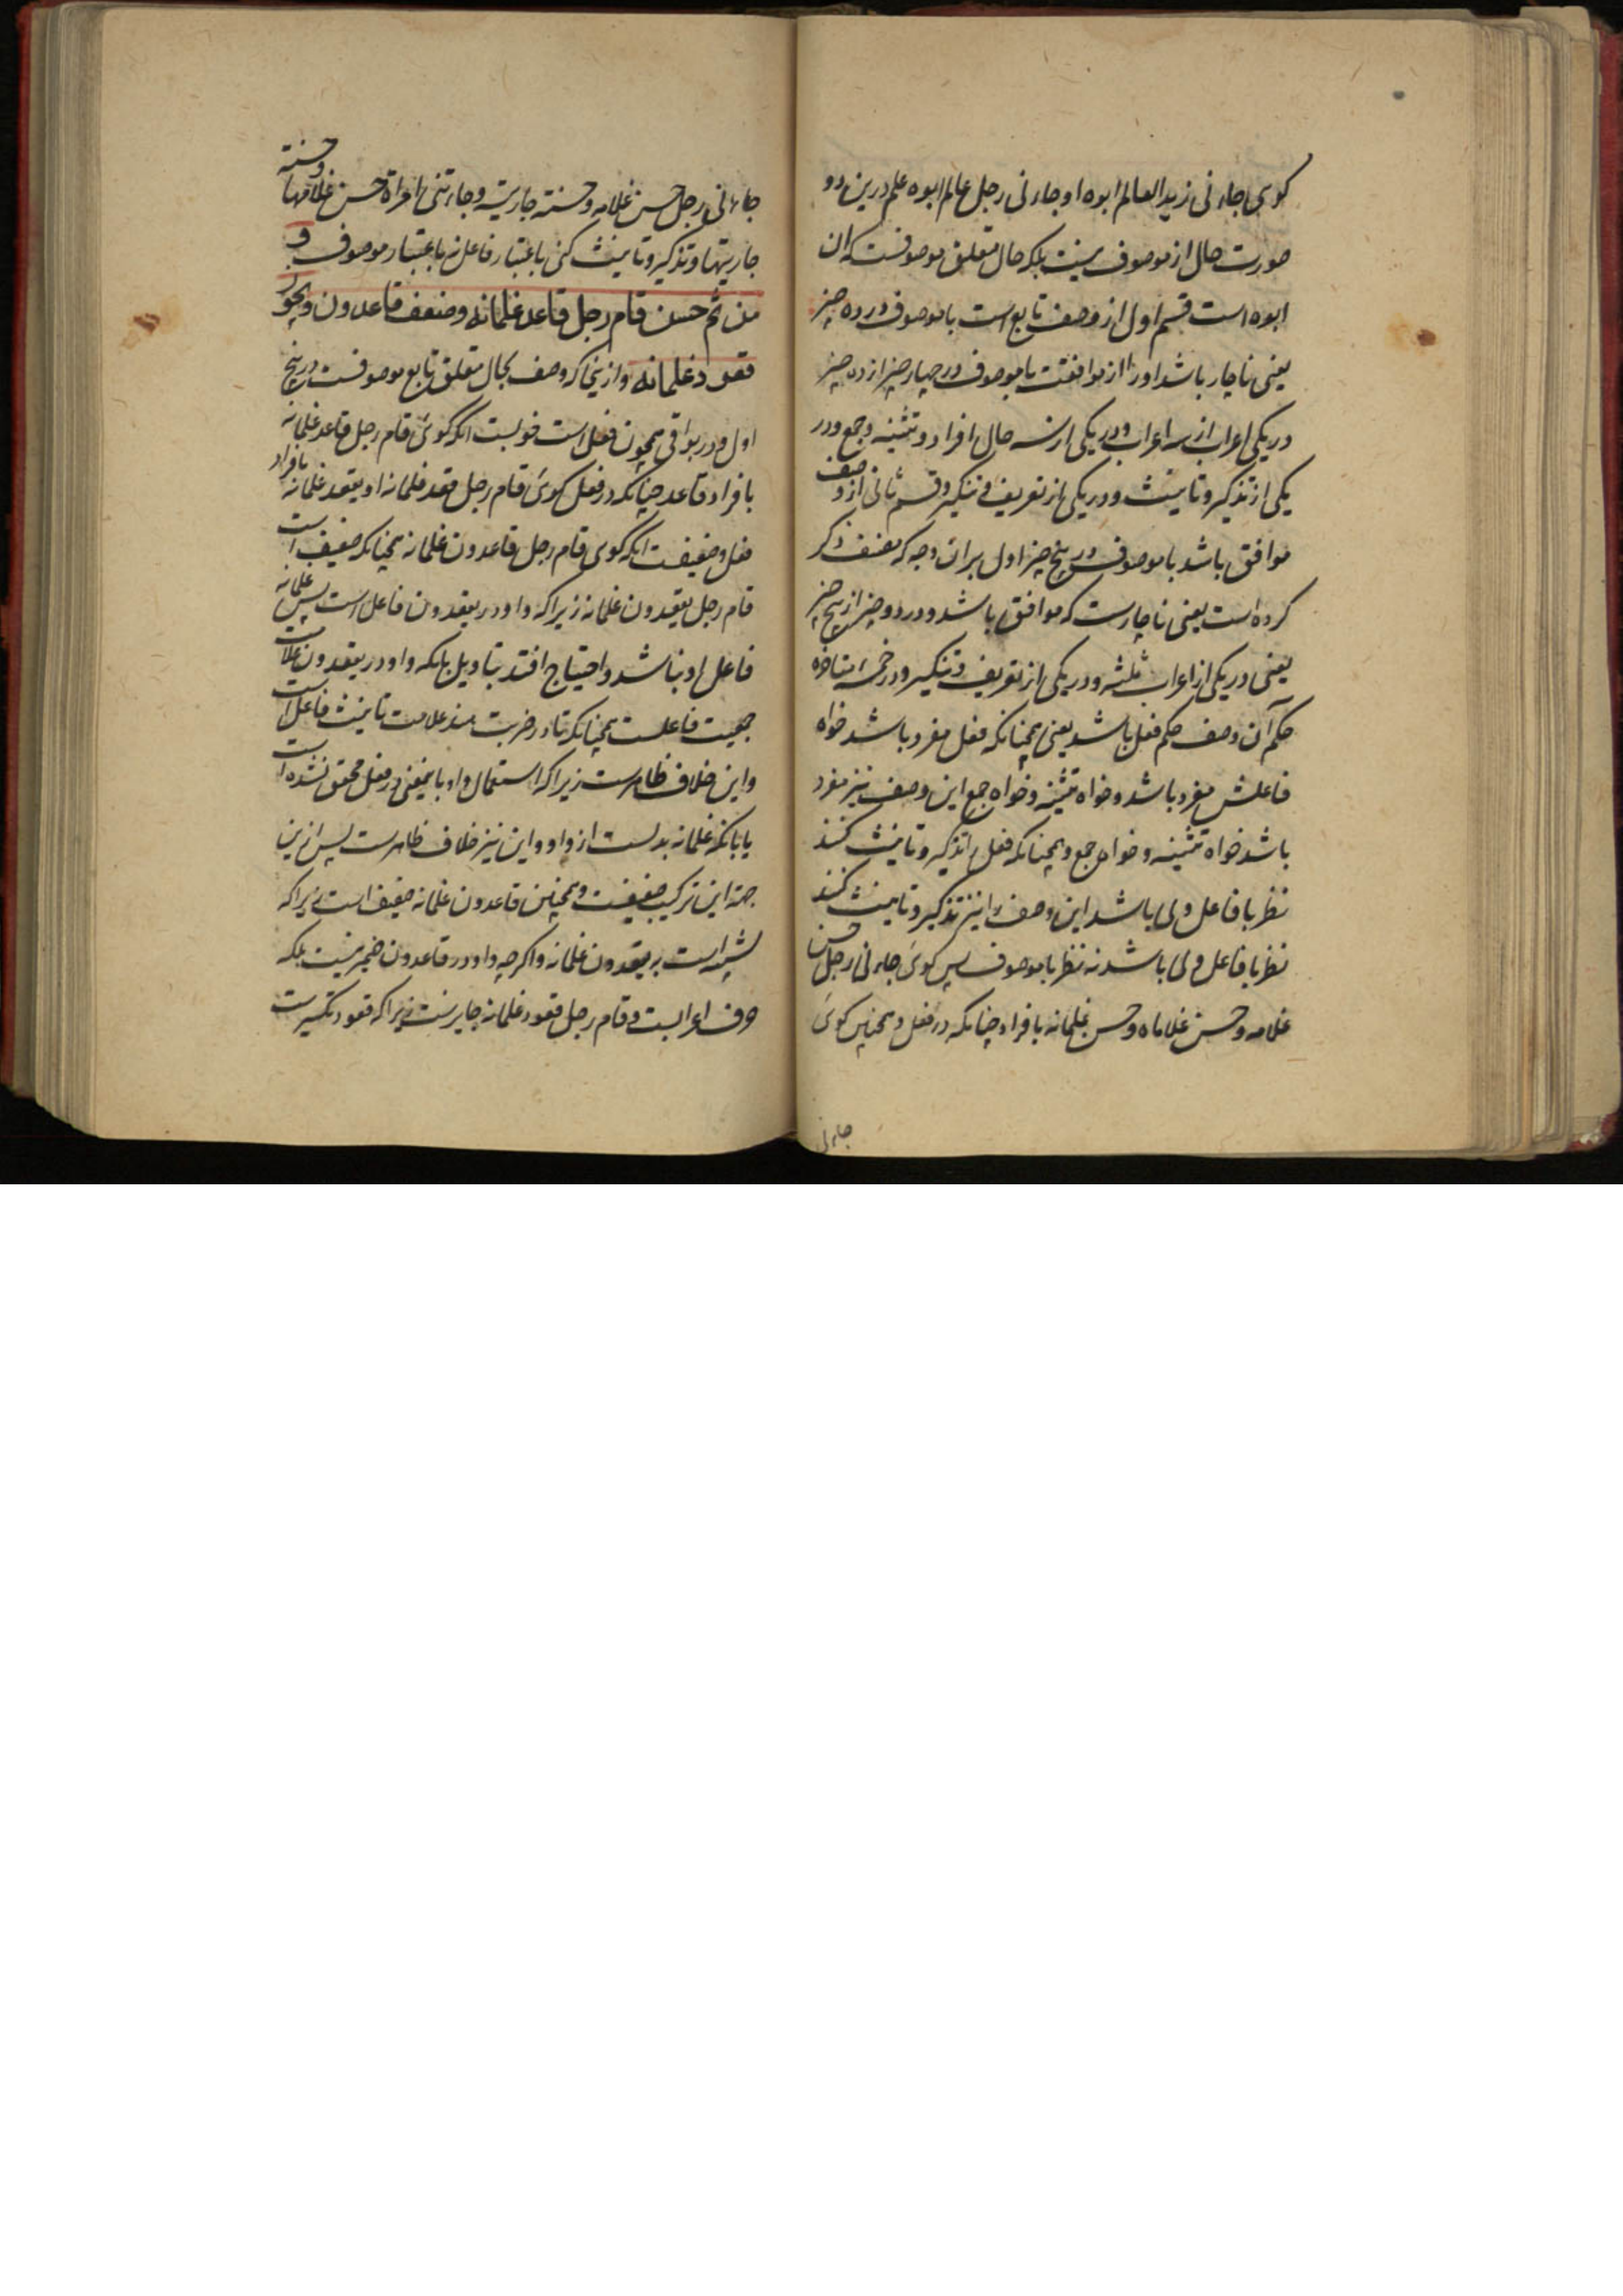 کوی جاءنی زید العالم ابوه او جاءنی رجل عالم ابوه علم درین دو
صورت حال از موصوف نیست بلکه حال متعلق موصوفست که ان
ابوه است قسم اول از وصف تابع است با موصوف در ده چیز
یعنی ناچار باشد او را از موافقت با موصوف در چهار چیز از ده چیز
در یکی اعراب از سه اعراب و در یکی از سه حال افراد و تثنیه و جمع و در
یکی از تذکیر و تانیث و در یکی از تعریف و تنکیر و قسم ثانی از وصف
موافق باشد با موصوف در پنج چیز اول بران وجه که مصنف ذکر
کرده است یعنی ناچارست که موافق باشد و در دو چیز از پنج چیز
یعنی در یکی از اعراب ثلثه و در یکی از تعریف و تنکیر و در خمسه متاخره
حکم آن وصف حکم فعل باشد یعنی همچنانکه فعل مفرد باشد خواه
فاعلش مفرد باشد و خواه تثنیه و خواه جمع این وصف نیز مفرد
باشد خواه تثنیه و خواه جمع و همچنانکه فعل را تذکیر و تانیث کنند
نظر با فاعل وی باشد این وصف را نیز تذکیر و تانیث کنند
نظر با فاعل وی باشد نه نظر با موصوف پس کوی جاءنی رجل حسن
غلامه و حسن غلاماه و حسن غلمانه بافراد چنانکه در فعل و همچنین کوی
جاءنی
جاءنی رجل حسن غلامه و حسنة جاریته و جاءتنی امراة حسن غلامها و حسنة
جاریتها و تذکیر و تانیث کنی باعتبار فاعل نه باعتبار موصوف و
من ثم حسن قام رجل قاعد غلمانه وضعف قاعدون ویجوز
قعود غلمانه و ازینجا که وصف بحال متعلق تابع موصوفست در پنج
اول و در بواقی همچون فعل است خوبست انکه کوی قام رجل قاعد غلمانه
بافراد قاعد چنانکه در فعل کوی قام رجل قعد غلمانه او یقعد غلمانه بافراد
فعل و ضعیفست انکه کوی قام رجل قاعدون غلمانه همچنانکه ضعیف است
قام رجل یقعدون غلمانه زیرا که واو در یقعدون فاعل است پس غلمانه
فاعل او نباشد و احتیاج افتد بتاویل بانکه واو در یقعدون علامت
جمعیت فاعلست همچنانکه تا در ضربت هند علامت تانیث فاعل است
و این خلاف ظاهرست زیرا که استعمال واو باین معنی در فعل محقق نشده است
یا بانکه غلمانه بدلست از واو و این نیز خلاف ظاهرست پس ازین
جهة این ترکیب ضعیفست و همچنین قاعدون غلمانه ضعیف است زیرا که
شبیه است به یقعدون غلمانه و اکرچه واو در قاعدون ضمیر نیست بلکه
حرف اعرابست و قام رجل قعود غلمانه جایزست زیرا که قعود تکسیرست